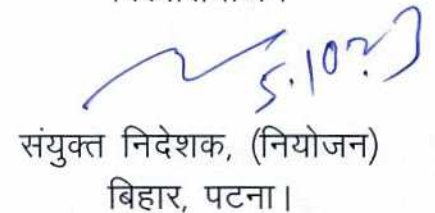 5.10.23
संयुक्त निदेशक, (नियोजन)
बिहार, पटना।